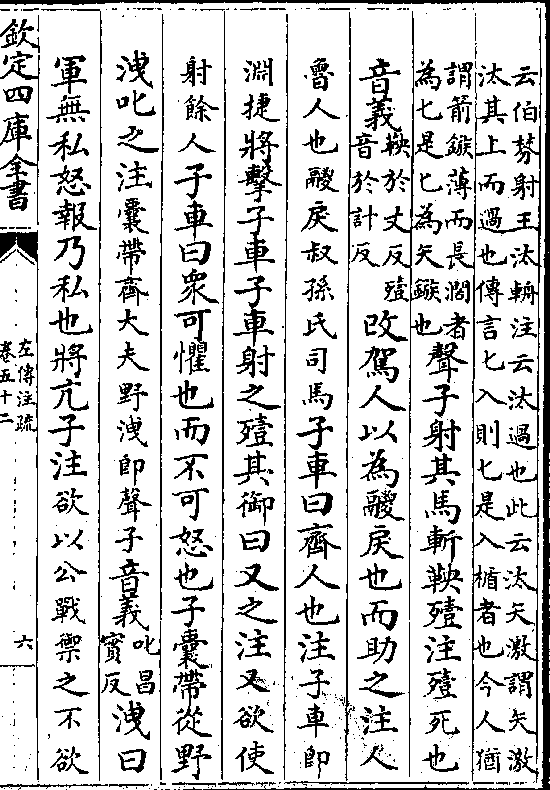 云伯棼射王汰輈注云汰過也此云汰矢激謂矢激
汰其上而過也傳言匕入則匕是入楯者也今人猶
謂箭鏃薄而長濶者
為匕是匕為矢鏃也
聲子射其馬斬鞅殪注殪死也
音義
鞅於丈反殪
音於計反
改駕人以為鬷戾也而助之注人
魯人也鬷戾叔孫氏司馬子車曰齊人也注子車即
淵捷將擊子車子車射之殪其御曰又之注又欲使
射餘人子車曰衆可懼也而不可怒也子囊帶從野
洩叱之注囊帶齊大夫野洩即聲子音義
叱昌
實反
洩曰
軍無私怒報乃私也將亢子注欲以公戰禦之不欲
欽定四庫全書
左傳注疏
卷五十二
六